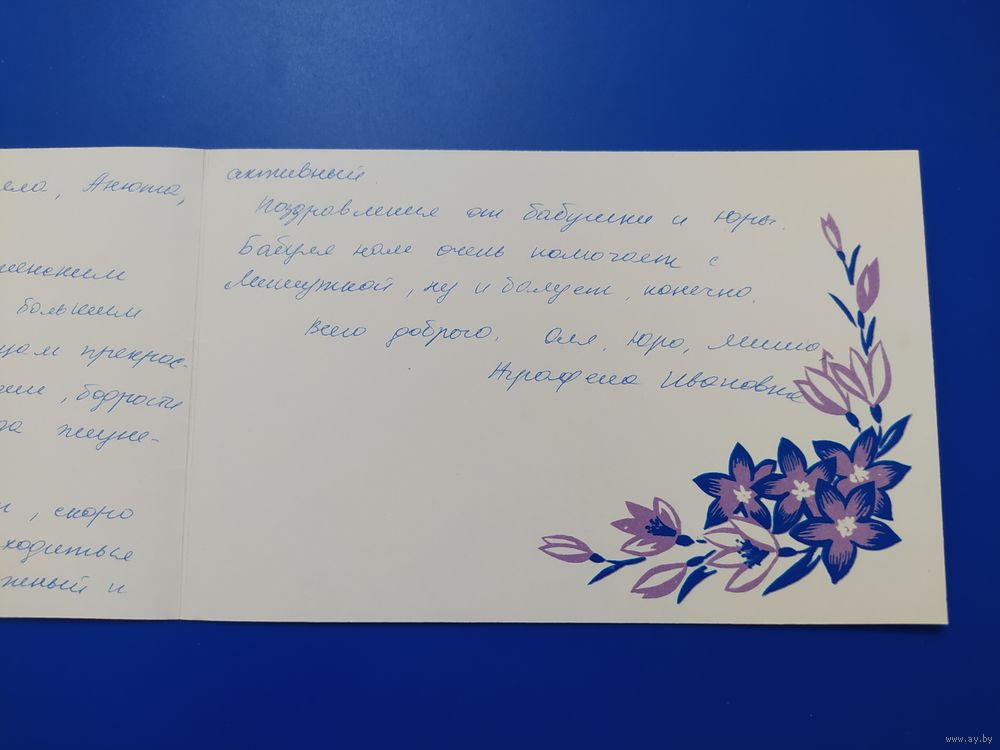 ела, Анюта,
женским
большим
прекрас-
, бодрости
, скоро
ходиться
и
активный.
Поздравления от бабушки и Юры.
Бабуля нам очень помогает с
Мишуткой, ну и балует, конечно.
Всего доброго. Оля, Юра, Миша,
Аграфена Ивановна
www.ay.by